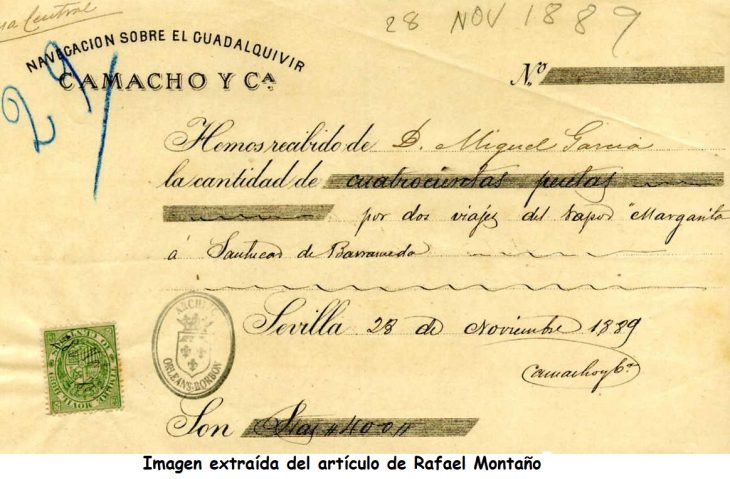 28 NOV 1889
NAVEGACION SOBRE EL GUADALQUIVIR
CAMACHO Y Cª
29
N.º
Hemos recibido de D. Miguel Garcia
la cantidad de cuatrocientas pesetas
por dos viajes del vapor "Margarita
á Sanlucar de Barrameda
Sevilla 28 de Noviembre 1889
Camacho y Cª
ARCHIVO
ORLEANS-BORBON
Son Ptas #400#
Imagen extraída del artículo de Rafael Montaño